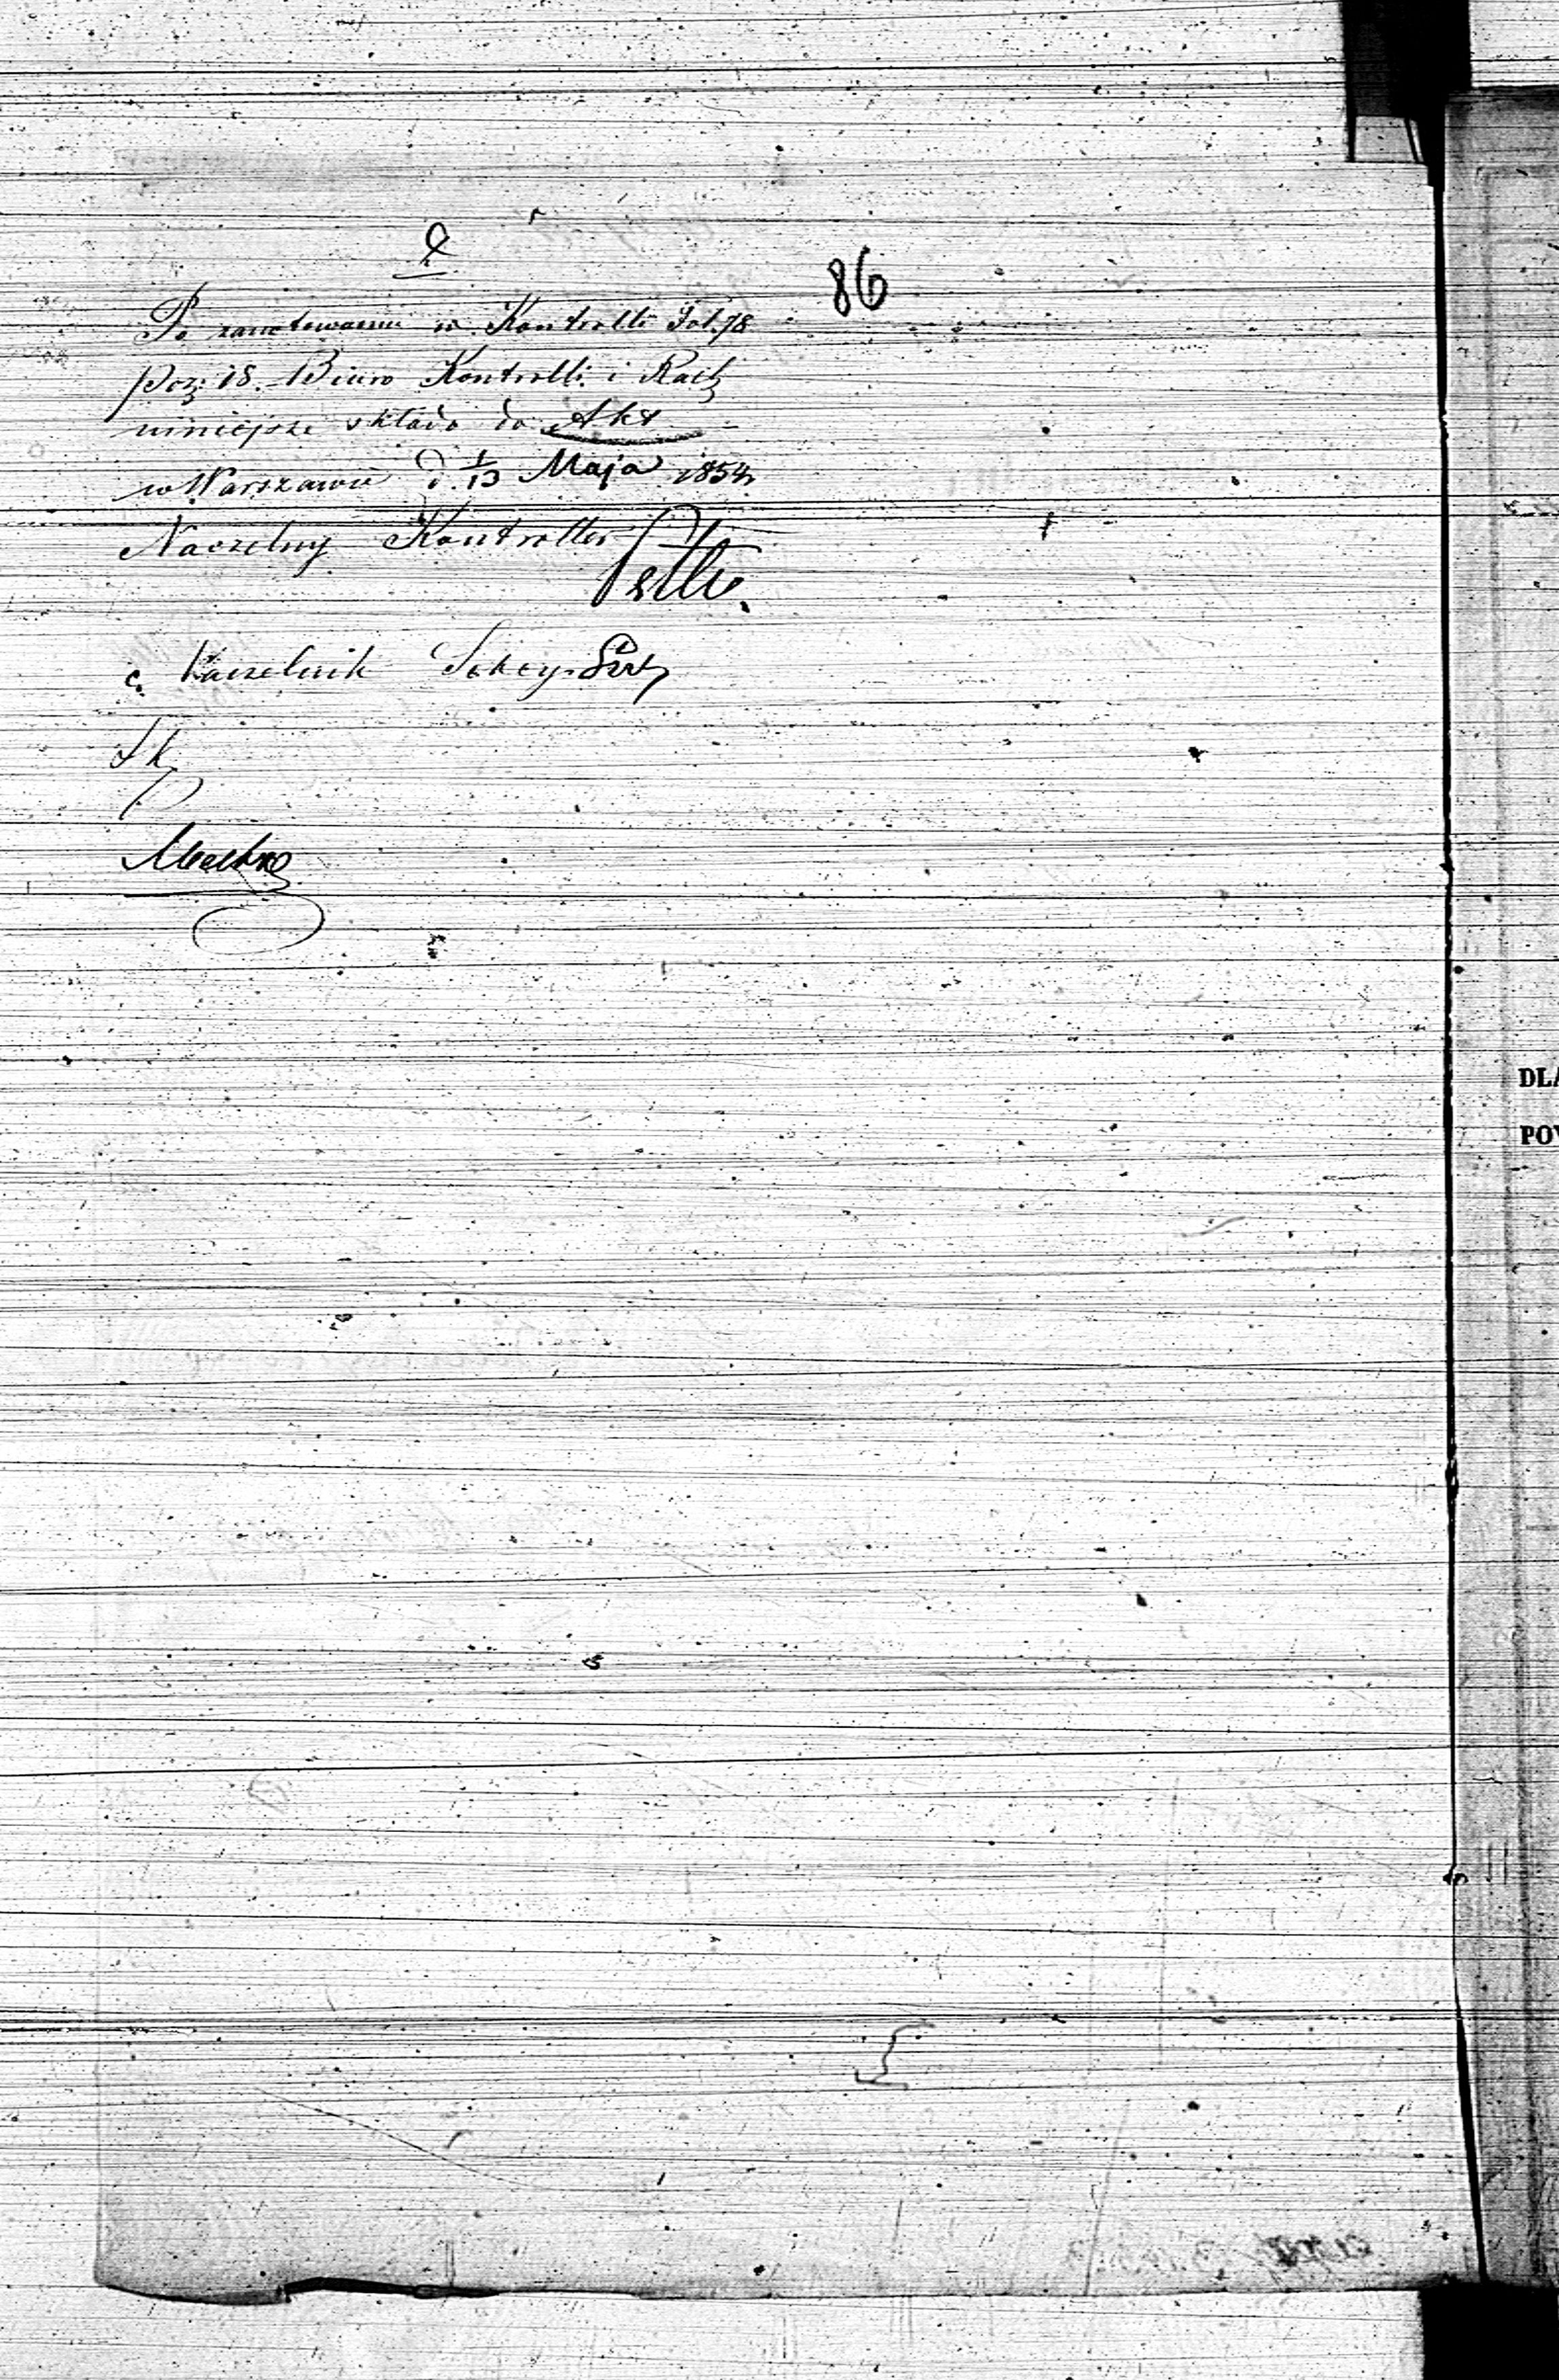 86
Po zanotowaniu w Kontrolli Fol. 78
poz: 18. Biuro Kontrolli i Rach
niniejsze składa do Akt
w Warszawie d. 1/13 Maja 1854
Naczelny Kontroller
Naczelnik Sekcyi
DLA